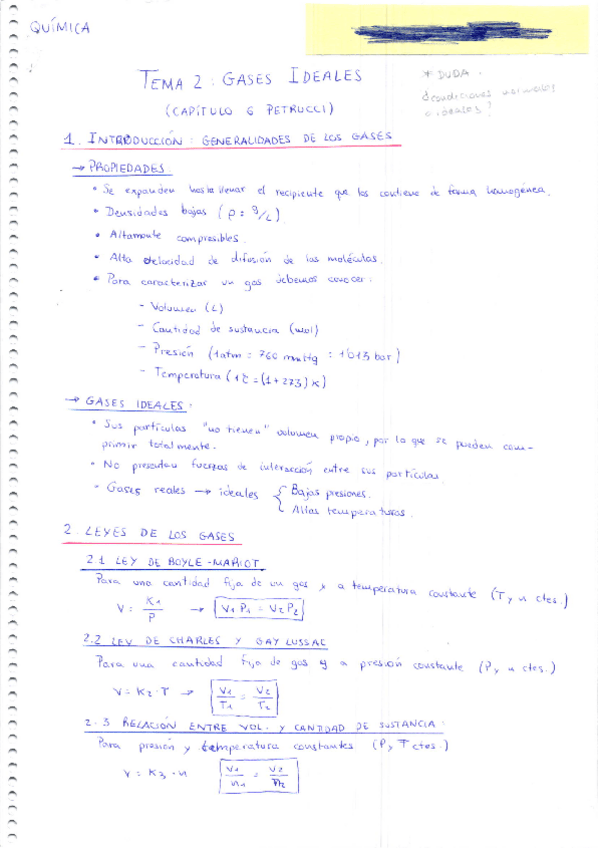 QUÍMICA
TEMA 2: GASES IDEALES
* DUDA.
(CAPÍTULO 6 PETRUCCI)
1. INTRODUCCIÓN: GENERALIDADES DE LOS GASES
→ PROPIEDADES.
• Se expanden hasta llenar el recipiente que los contiene de forma homogénea.
• Densidades bajas (ρ = g/L).
• Altamente compresibles.
• Alta velocidad de difusión de las moléculas.
• Para caracterizar un gas debemos conocer:
- Volumen (L)
- Cantidad de sustancia (mol)
- Presión (1atm = 760 mmHg = 1'013 bar)
- Temperatura (1℃ = (1+273) K)
→ GASES IDEALES:
• Sus partículas "no tienen" volumen propio, por lo que se pueden com-
primir totalmente.
• No presentan fuerzas de interacción entre sus partículas.
• Gases reales → ideales { Bajas presiones.
Altas temperaturas.
2. LEYES DE LOS GASES
2.1 LEY DE BOYLE-MARIOT
Para una cantidad fija de un gas y a temperatura constante (T y n ctes.)
V = K1/P → V1 P1 = V2 P2
2.2 LEY DE CHARLES Y GAY LUSSAC
Para una cantidad fija de gas y a presión constante (P y n ctes.)
V = K2 · T → V1/T1 = V2/T2
2.3 RELACIÓN ENTRE VOL. Y CANTIDAD DE SUSTANCIA:
Para presión y temperatura constantes (P y T ctes.)
V = K3 · n V1/n1 = V2/n2